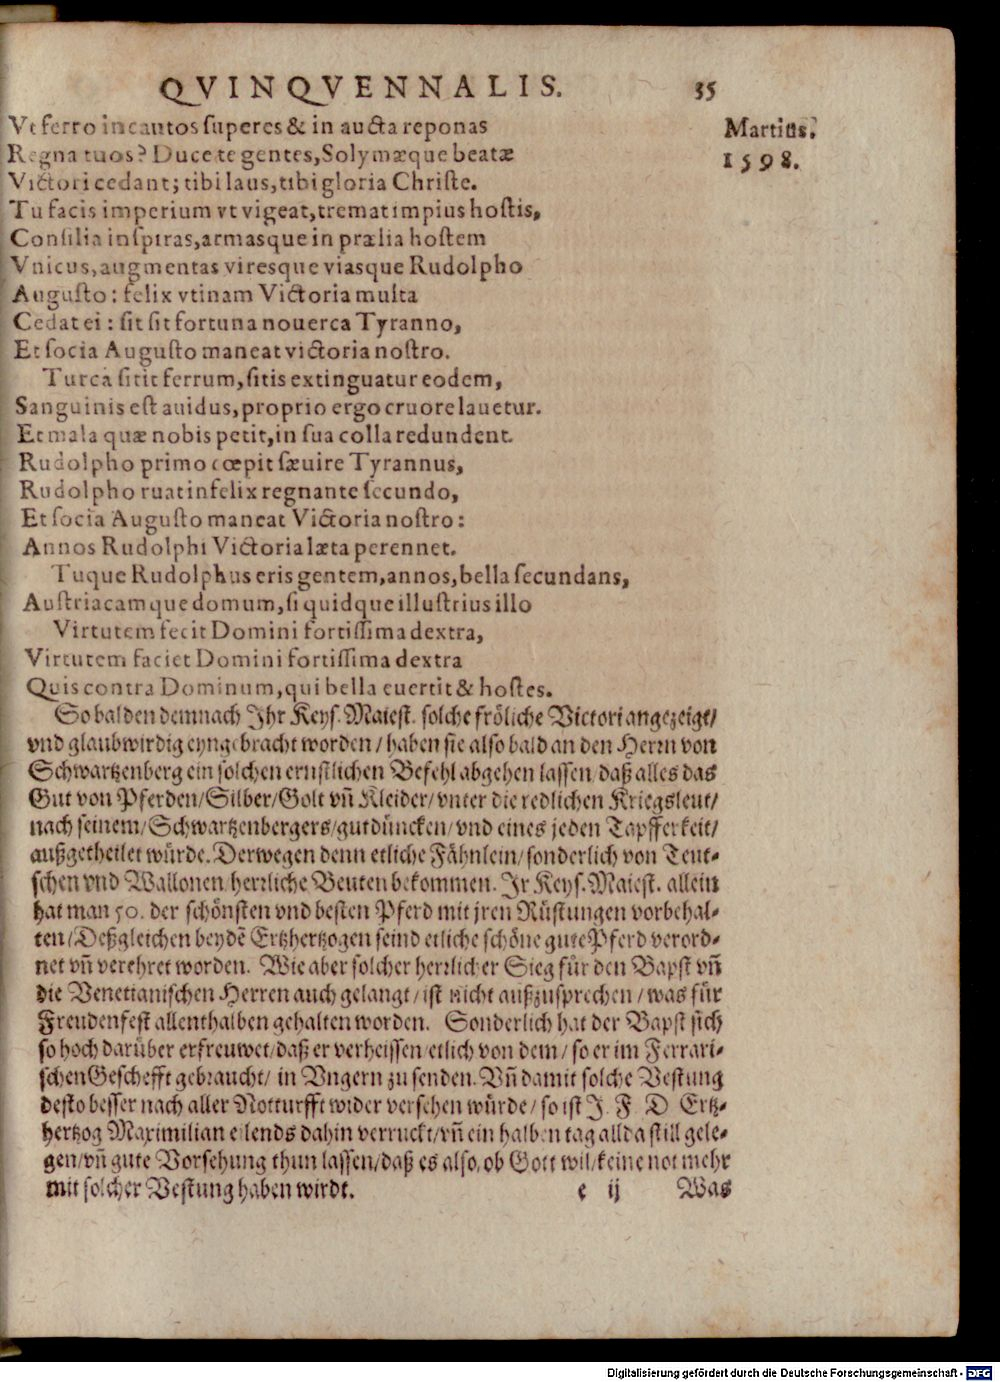 QVINQVENNALIS. 35
Vt ferro incautos superes & in aucta reponas
Martius.
Regna tuos? Duce te gentes, Solymæque beatæ
1598.
Victori cedant; tibi laus, tibi gloria Christe.
Tu facis imperium vt vigeat, tremat impius hostis,
Consilia inspiras, armasque in prælia hostem
Vnicus, augmentas viresque viasque Rudolpho
Augusto: felix vtinam Victoria multa
Cedat ei: sit sit fortuna nouerca Tyranno,
Et socia Augusto maneat victoria nostro.
Turca sitit ferrum, sitis extinguatur eodem,
Sanguinis est auidus, proprio ergo cruore lauetur.
Et mala quæ nobis petit, in sua colla redundent.
Rudolpho primo cœpit sæuire Tyrannus,
Rudolpho ruat infelix regnante secundo,
Et socia Augusto maneat Victoria nostro:
Annos Rudolphi Victoria læta perennet.
Tuque Rudolphus eris gentem, annos, bella secundans,
Austriacamque domum, si quidque illustrius illo
Virtutem fecit Domini fortissima dextra,
Virtutem faciet Domini fortissima dextra
Quis contra Dominum, qui bella euertit & hostes.
So balden demnach Ihr Keys. Maiest. solche fröliche Victori angezeigt/
vnd glaubwirdig eyngebracht worden / haben sie also bald an den Herrn von
Schwartzenberg ein solchen ernstlichen Befehl abgehen lassen/ daß alles das
Gut von Pferden/ Silber/ Golt vñ Kleider/ vnter die redlichen Kriegsleut/
nach seinem/ Schwartzenbergers/ gutdüncken/ vnd eines jeden Tapfferkeit/
außgetheilet würde. Derwegen denn etliche Fähnlein/ sonderlich von Teut-
schen vnd Wallonen/ herrliche Beuten bekommen. Ir Keys. Maiest. allein
hat man 50. der schönsten vnd besten Pferd mit jren Rüstungen vorbehal-
ten/ Deßgleichen beydē Ertzhertzogen seind etliche schöne gute Pferd verord-
net vñ verehret worden. Wie aber solcher herrlicher Sieg für den Bapst vñ
die Venetianischen Herren auch gelangt/ ist nicht außzusprechen / was für
Freudenfest allenthalben gehalten worden. Sonderlich hat der Bapst sich
so hoch darüber erfreuwet/ daß er verheissen/ etlich von dem / so er im Ferrari-
schen Geschefft gebraucht/ in Vngern zu senden. Vñ damit solche Vestung
desto besser nach aller Notturfft wider versehen würde / so ist J. F. D Ertz-
hertzog Maximilian eilends dahin verruckt/ vñ ein halben tag allda still gele-
gen/ vñ gute Vorsehung thun lassen/ daß es also, ob Gott wil/ keine not mehr
mit solcher Vestung haben wirdt.
e ij Was
Digitalisierung gefördert durch die Deutsche Forschungsgemeinschaft - DFG